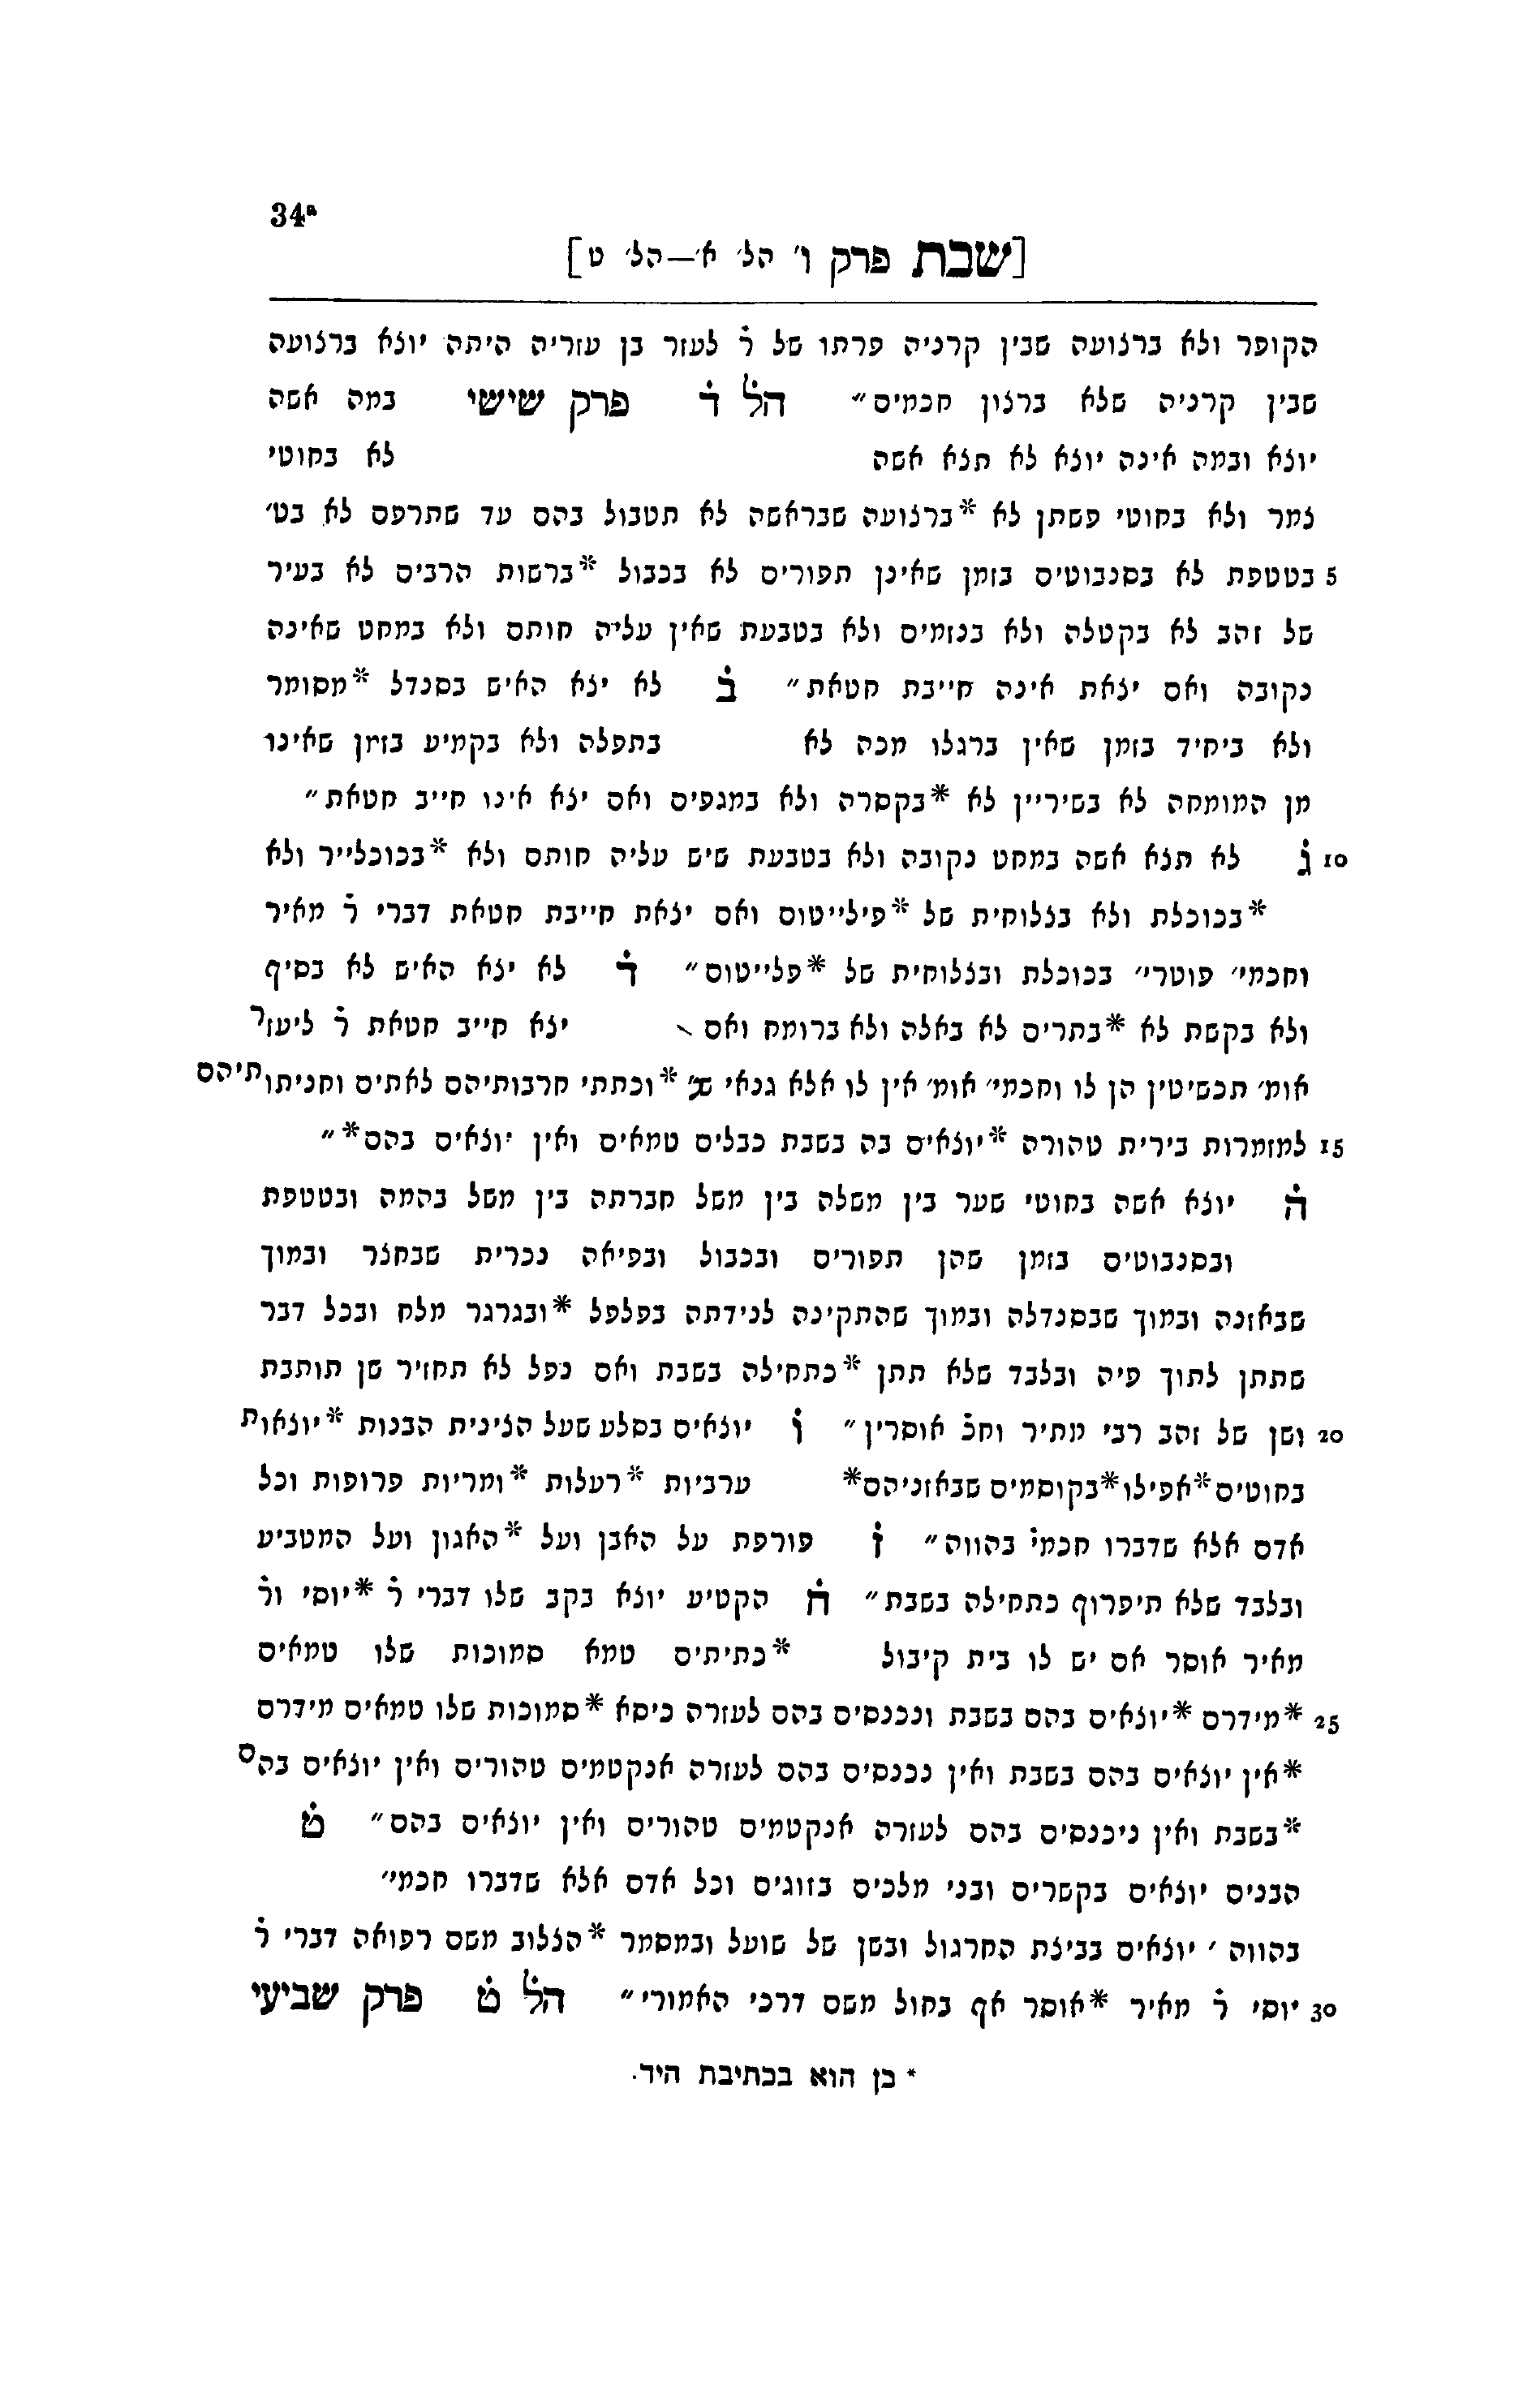 34ª
[שבת פרק ו׳ הל׳ א׳—הל׳ ט]
הקופר ולא ברצועה שבין קרניה פרתו של ר̇ לעזר בן עזריה היתה יוצא ברצועה
שבין קרניה שלא ברצון חכמים״ הל̇ ד̇ פרק שישי במה אשה
יוצא ובמה אינה יוצא לא תצא אשה לא בחוטי
צמר ולא בחוטי פשתן לא *ברצועה שבראשה לא תטבול בהם עד שתרפס לא בט׳
5 בטטפת לא בסנבוטים בזמן שאינן תפורים לא בכבול *ברשות הרבים לא בעיר
של זהב לא בקטלה ולא בנזמים ולא בטבעת שאין עליה חותם ולא במחט שאינה
נקובה ואם יצאת אינה חייבת חטאת״ ב̇ לא יצא האיש בסנדל *מסומר
ולא ביחיד בזמן שאין ברגלו מכה לא בתפלה ולא בקמיע בזמן שאינו
מן המומחה לא בשיריין לא *בקסרה ולא במגפים ואם יצא אינו חייב חטאת״
10 ג̇ לא תצא אשה במחט נקובה ולא בטבעת שיש עליה חותם ולא *בכוכלייר ולא
*בכוכלת ולא בצלוחית של *פילייטום ואם יצאת חייבת חטאת דברי ר̇ מאיר
וחכמי׳ פוטרי׳ בכוכלת ובצלוחית של *פלייטום״ ד̇ לא יצא האיש לא בסיף
ולא בקשת לא *בתרים לא באלה ולא ברומח ואם יצא חייב חטאת ר̇ ליעזר
אומ׳ תכשיטין הן לו וחכמי׳ אומ׳ אין לו אלא גנאי שנ׳ *וכתתי חרבותיהם לאתים וחניתותיהם
15 למזמרות בירית טהורה *יוצאים בה בשבת כבלים טמאים ואין יוצאים בהם*״
ה̇ יוצא אשה בחוטי שער בין משלה בין משל חברתה בין משל בהמה ובטטפת
ובסנבוטים בזמן שהן תפורים ובכבול ובפיאה נכרית שבחצר ובמוך
שבאזנה ובמוך שבסנדלה ובמוך שהתקינה לנידתה בפלפל *ובגרגר מלח ובכל דבר
שתתן לתוך פיה ובלבד שלא תתן *כתחילה בשבת ואם נפל לא תחזיר שן תותבת
20 ושן של זהב רבי מתיר וחכ̇ אוסרין״ ו̇ יוצאים בסלע שעל הצינית הבנות *יוצאות
בחוטים*אפילו*בקוסמים שבאזניהם* ערביות *רעלות *ומריות פרופות וכל
אדם אלא שדברו חכמי̇ בהווה״ ז̇ פורפת על האבן ועל *האגון ועל המטביע
ובלבד שלא תיפרוף כתחילה בשבת״ ח̇ הקטיע יוצא בקב שלו דברי ר̇ *יוסי ור̇
מאיר אוסר אם יש לו בית קיבול *כתיתים טמא סמוכות שלו טמאים
25 *מידרס *יוצאים בהם בשבת ונכנסים בהם לעזרה כיסא *סמוכות שלו טמאים מידרס
*אין יוצאים בהם בשבת ואין נכנסים בהם לעזרה אנקטמים טהורים ואין יוצאים בהם
*בשבת ואין ניכנסים בהם לעזרה אנקטמים טהורים ואין יוצאים בהם״ ט̇
הבנים יוצאים בקשרים ובני מלכים בזוגים וכל אדם אלא שדברו חכמי׳
בהווה ׳ יוצאים בביצת החרגול ובשן של שועל ובמסמר *הצלוב משם רפואה דברי ר̇
30 יוסי ר̇ מאיר *אוסר אף בחול משם דרכי האמורי״ הל̇ ט̇ פרק שביעי
* כן הוא בכתיבת היד.